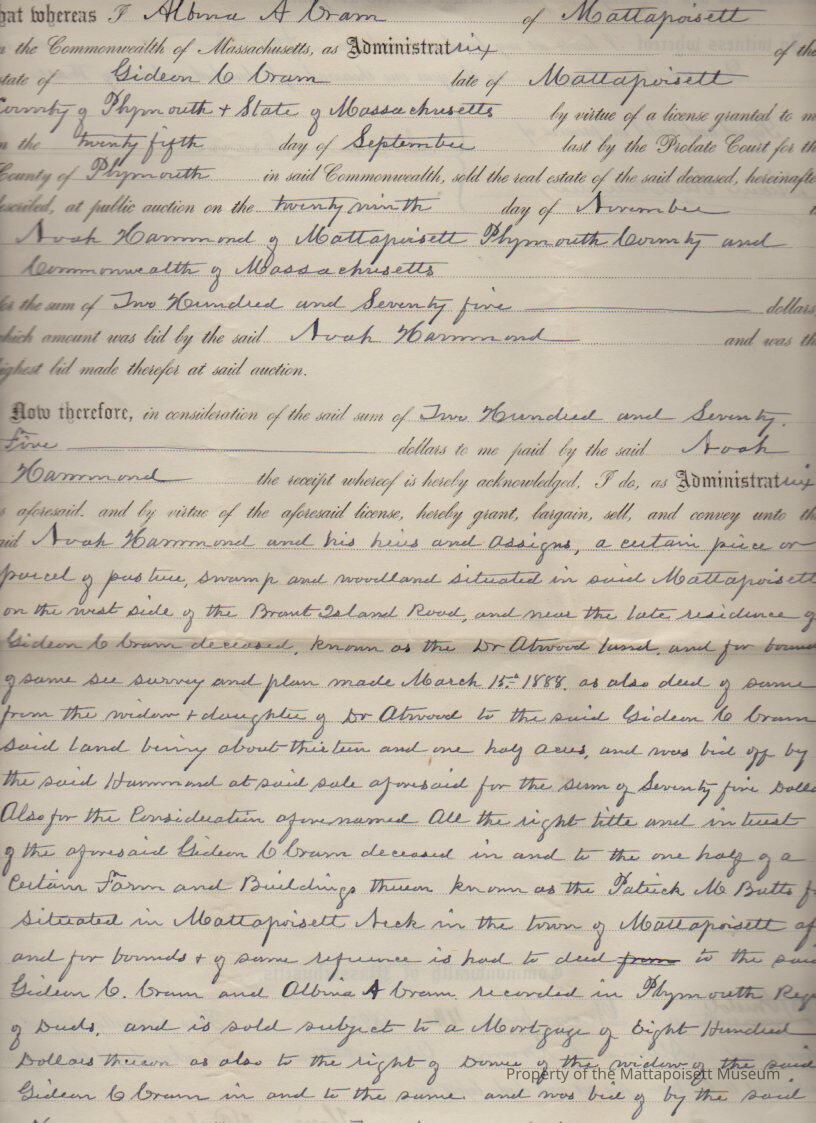 hat whereas I Albina A Cram of Mattapoisett
n the Commonwealth of Massachusetts, as Administratrix of the
state of Gideon C Cram late of Mattapoisett
County of Plymouth & State of Massachusetts by virtue of a license granted to m
n the twenty fifth day of September last by the Probate Court for th
County of Plymouth in said Commonwealth, sold the real estate of the said deceased, hereinafte
escribed, at public auction on the twenty ninth day of November t
Noah Hammond of Mattapoisett Plymouth County and
Commonwealth of Massachusetts
for the sum of Two Hundred and Seventy five dollars,
which amount was bid by the said Noah Hammond and was th
ighest bid made therefor at said auction.
Now therefore, in consideration of the said sum of Two Hundred and Seventy
Five dollars to me paid by the said Noah
Hammond the receipt whereof is hereby acknowledged, I do, as Administratrix
s aforesaid, and by virtue of the aforesaid license, hereby grant, bargain, sell, and convey unto th
aid Noah Hammond and his heirs and assigns, a certain piece or
parcel of pasture, swamp and woodland situated in said Mattapoisett
on the west side of the Brant Island Road, and near the late residence of
Gideon C Cram deceased, known as the Dr Atwood land, and for bound
of same see survey and plan made March 15th 1888. as also deed of same
from the widow & daughter of Dr Atwood to the said Gideon C Cram
said land being about thirteen and one half acres, and was bid off by
the said Hammond at said sale aforesaid for the sum of Seventy five Dolla
Also for the Consideration aforenamed All the right title and interest
of the aforesaid Gideon C Cram deceased in and to the one half of a
Certain Farm and Buildings thereon known as the Patrick Mc Butts f
situated in Mattapoisett Neck in the town of Mattapoisett af
and for bounds & of same reference is had to deed from to the said
Gideon C. Cram and Albina A Cram recorded in Plymouth Regi
of Deeds, and is sold subject to a Mortgage of Eight Hundred
Dollars thereon as also to the right of Dower of the widow of the said
Gideon C Cram in and to the same and was bid of by the said
Property of the Mattapoisett Museum